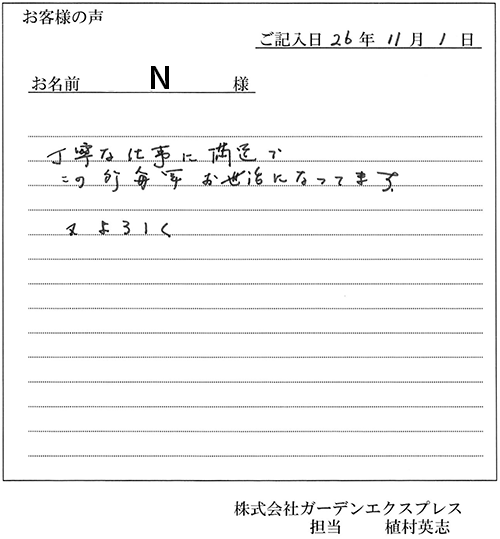 お客様の声
ご記入日 26年 11月 1日
お名前 N 様
丁寧な仕事に満足で
この 毎年 お世話になってます
又よろしく
株式会社ガーデンエクスプレス
担当 植村英志